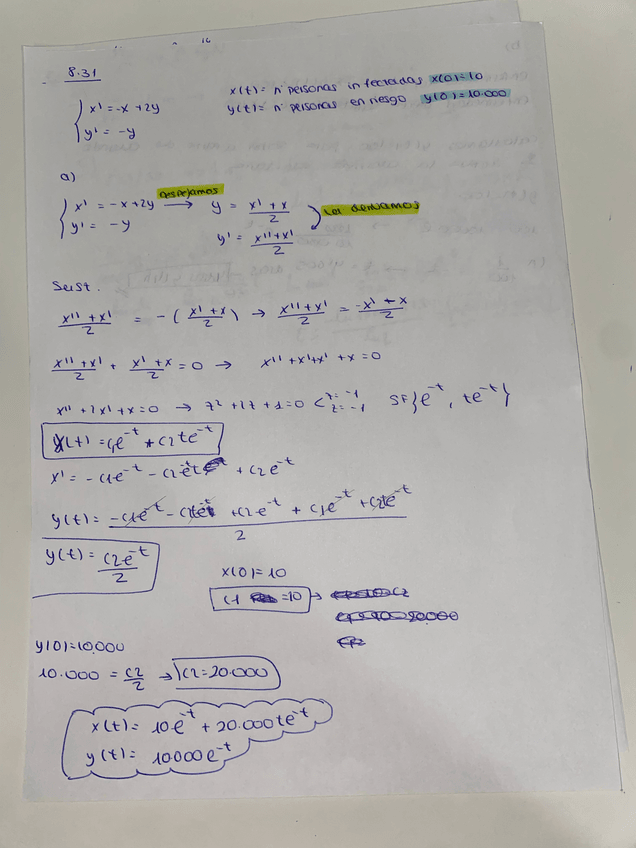 8.31
x(t) = nº personas infectadas x(0)=10
{ x' = -x + 2y
y' = -y
y(t) = nº personas en riesgo y(0)=10.000
a)
{ x' = -x + 2y Despejamos → y = (x' + x)/2
y' = -y
y' = (x'' + x')/2 derivamos
Sust.
(x'' + x')/2 = -((x' + x)/2) → (x'' + x')/2 = (-x' + x)/2
(x'' + x')/2 + (x' + x)/2 = 0 → x'' + x' + x' + x = 0
x'' + 2x' + x = 0 → r² + 2r + 1 = 0 < r = -1 r = -1 SF{e^-t, te^-t}
x(t) = c1e^-t + c2te^-t
x' = -c1e^-t - c2e^-t t + c2e^-t
y(t) = (-c1e^-t - c2te^-t + c2e^-t + c1e^-t + c2te^-t)/2
y(t) = c2e^-t/2
x(0) = 10
c1 = 10 →
y(0)=10.000
10.000 = c2/2 → c2 = 20.000
x(t) = 10·e^-t + 20.000te^-t
y(t) = 10000e^-t